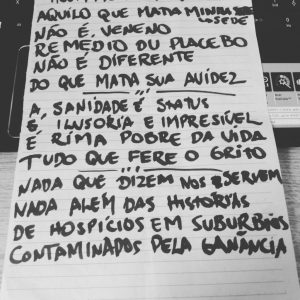 AQUILO QUE MATA MINHA
SEDE
NÃO É, VENENO
REMEDIO OU PLACEBO
NÃO É DIFERENTE
DO QUE MATA SUA AVIDEZ
A, SANIDADE É STATUS
É, ILUSORIA E IMPRESIVEL
E RIMA POBRE DA VIDA
TUDO QUE FERE O GRITO
NADA QUE DIZEM NOS SERVEM
NADA ALEM DAS HISTORIAS
DE HOSPÍCIOS EM SUBURBIOS
CONTAMINADOS PELA GANÂNCIA